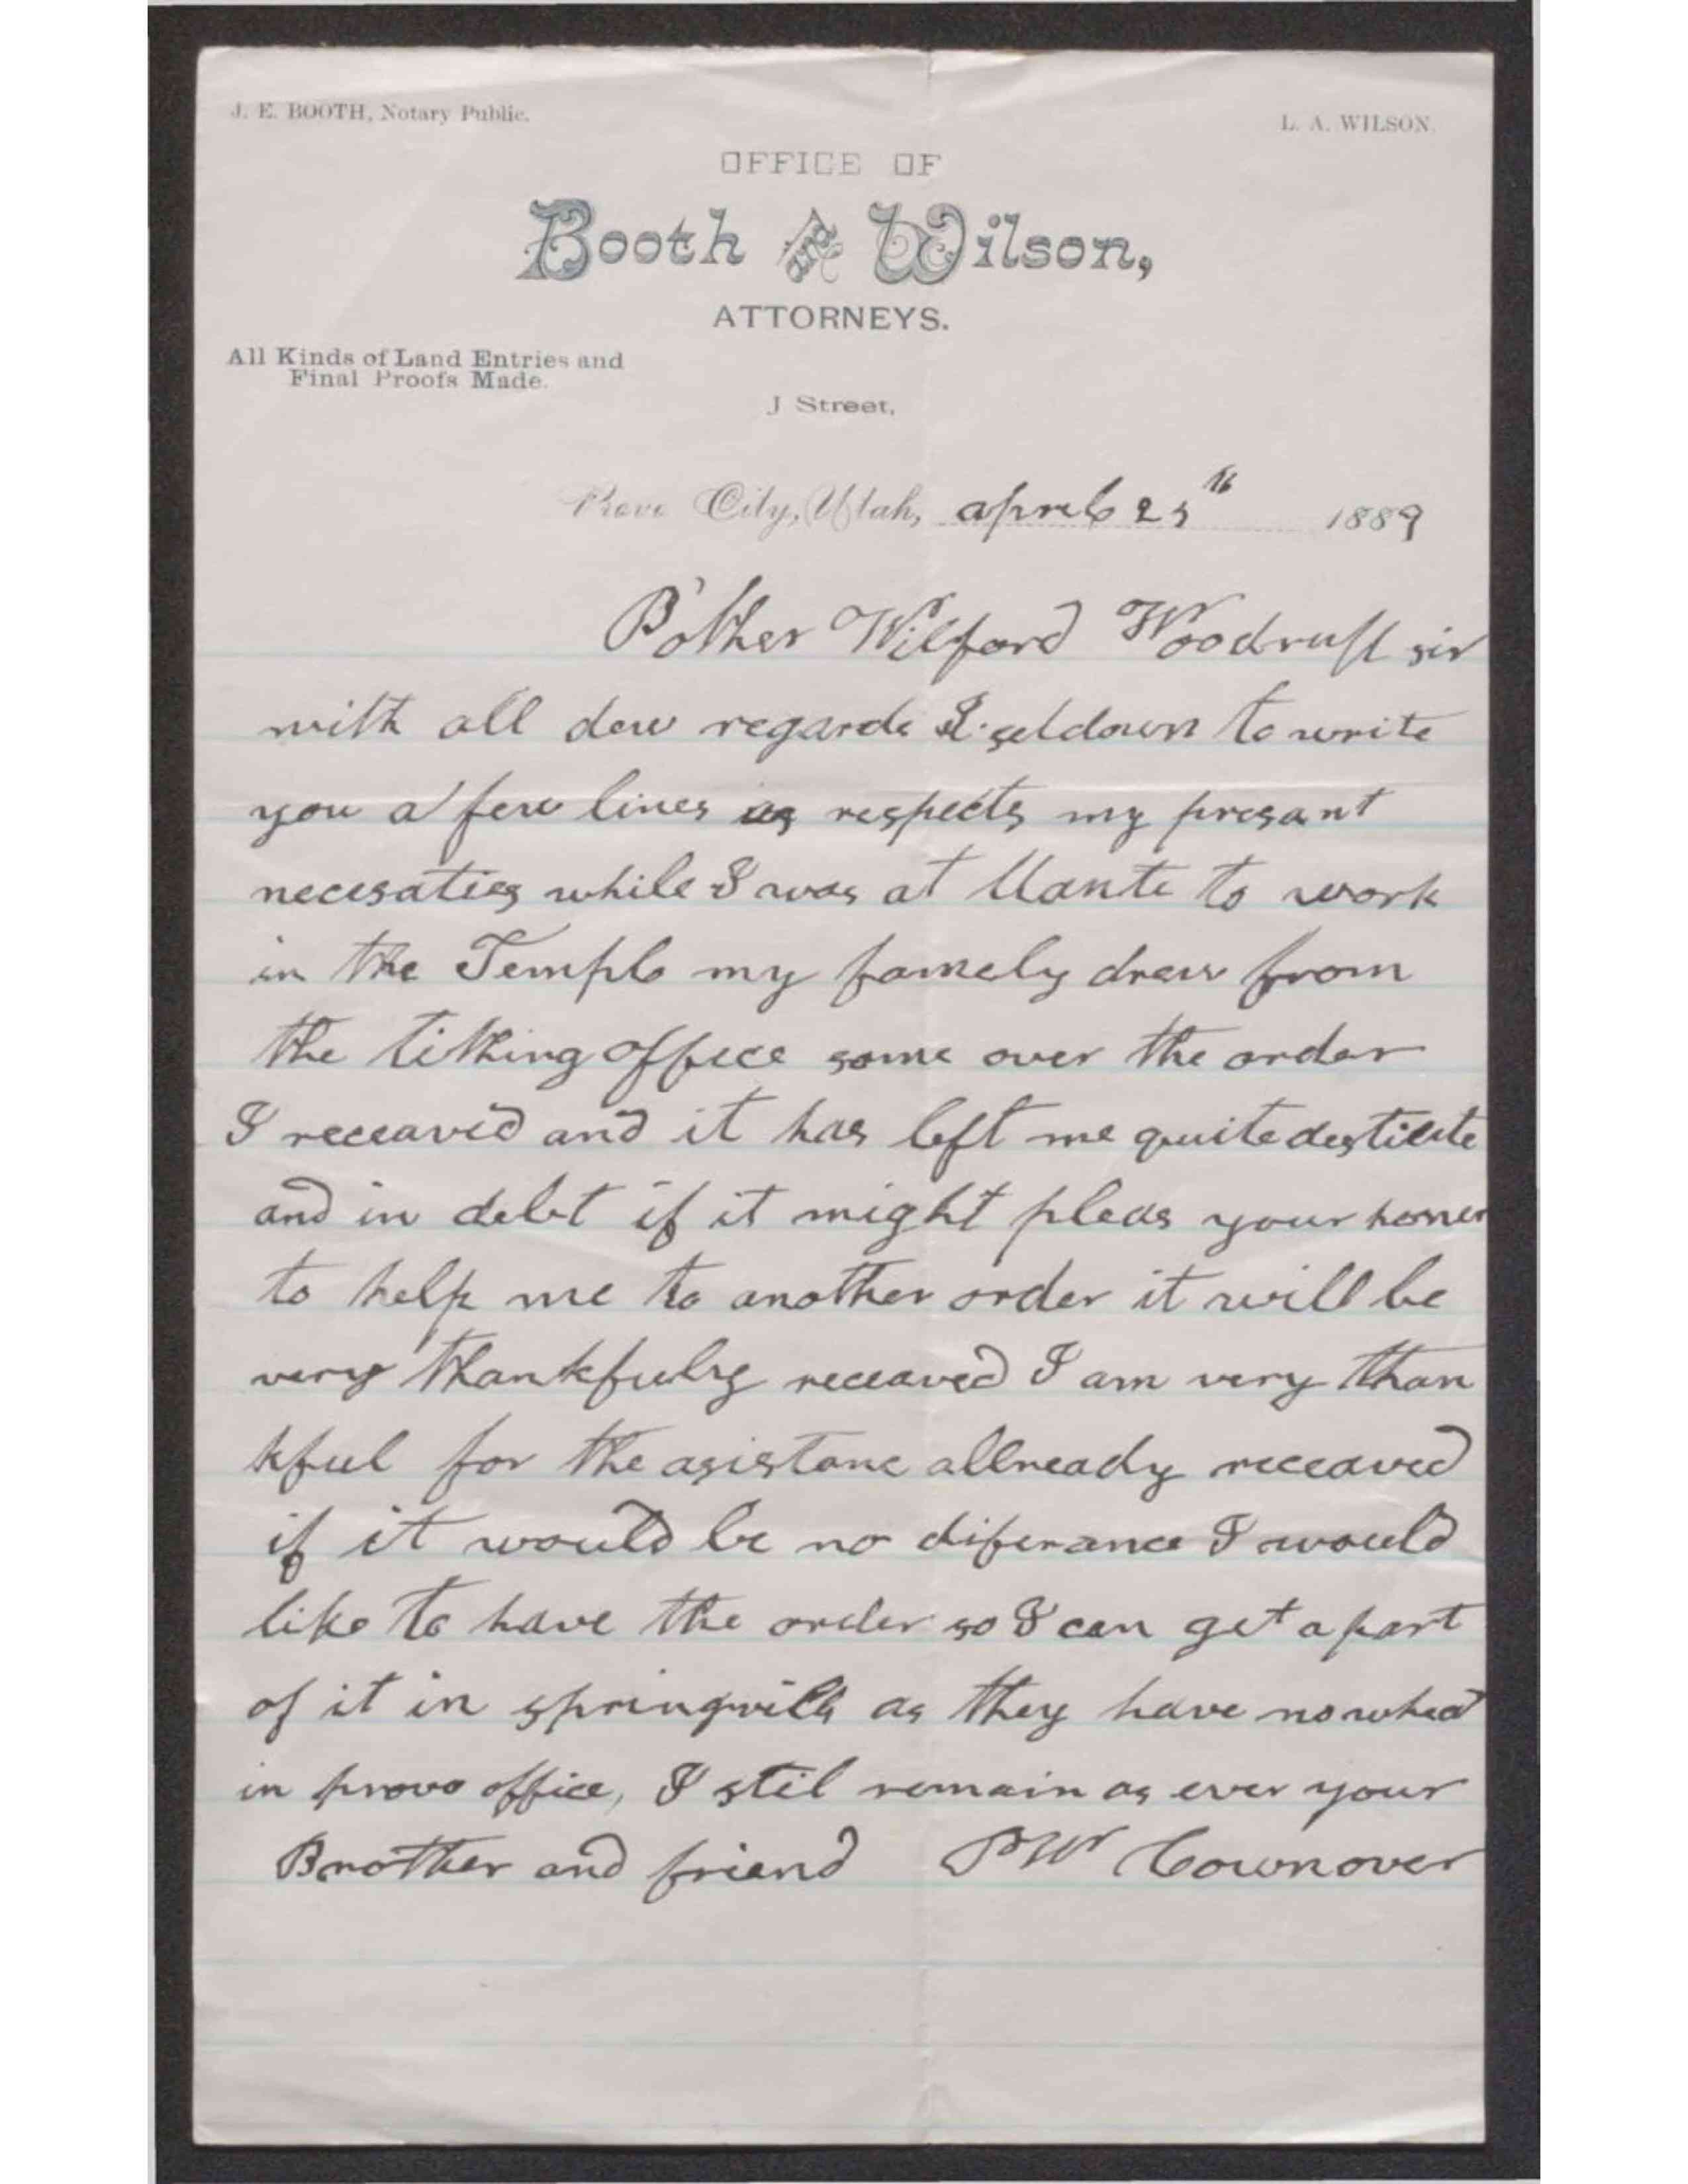 J. E. BOOTH, Notary Public.
L. A. WILSON.
OFFICE OF
Booth and Wilson,
ATTORNEYS.
All Kinds of Land Entries and
Final Proofs Made.
J Street,
Provo City, Utah, april 25th 1889
Bother Wilford Woodruff sir
with all dew regards I set down to write
you a few lines as respects my presant
necesaties while I was at Mante to work
in the Temple my famely drew from
the tithing office some over the order
I receaved and it has left me quite destitute
and in debt if it might pleas your honer
to help me to another order it will be
very thankfuly receaved I am very than
kful for the asistanc allready receaved
if it would be no diferance I would
like to have the order so I can get a part
of it in springvill as they have no wheat
in provo office, I stil remain as ever your
Brother and friend P W Cownover